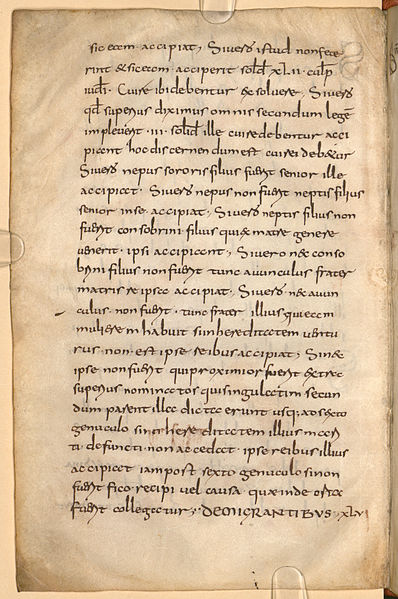 sic eam accipiat, Si uero istud non fece
rint & sic eam acciperit solid xlii culp
iudi. Cui reibi debentur exsoluere. Si uero
qd superius diximus omnis secundum legē
impleuerit iii solid ille cui rei debentur acci
piant hoc discernendum est cui rei debeatur
Si uero nepus sororis filius fuerit senior ille
accipiat. Si uero nepus non fuerit neptis filius
senior inse accipiat, Si uero neptis filius non
fuerit consobrini filius qui ex matre genere
uenerit ipsi accipiant, Si uero nec conso
brini filius non fuerit tunc auunculus frater
matris re ipsa accipiat, Si uero nec auun
culus non fuerit tunc frater illius qui eam
muliere m habuit si in hereditatem ventu
rus non est ipse reibus accipiat, Si nec
ipse non fuerit qui proximior fuerit extra
superius nominatos qui singulatim secun
dum parentilla dicta erunt usq; ad sexto
geniculo si in hereditatem illius mari
ti defuncti non accedat ipse reibus illius
accipiat iam post sexto geniculo si non
fuerit fisco recipi uel causa quæ inde orta
fuerit collegatur; DE MIGRANTIBUS xlv